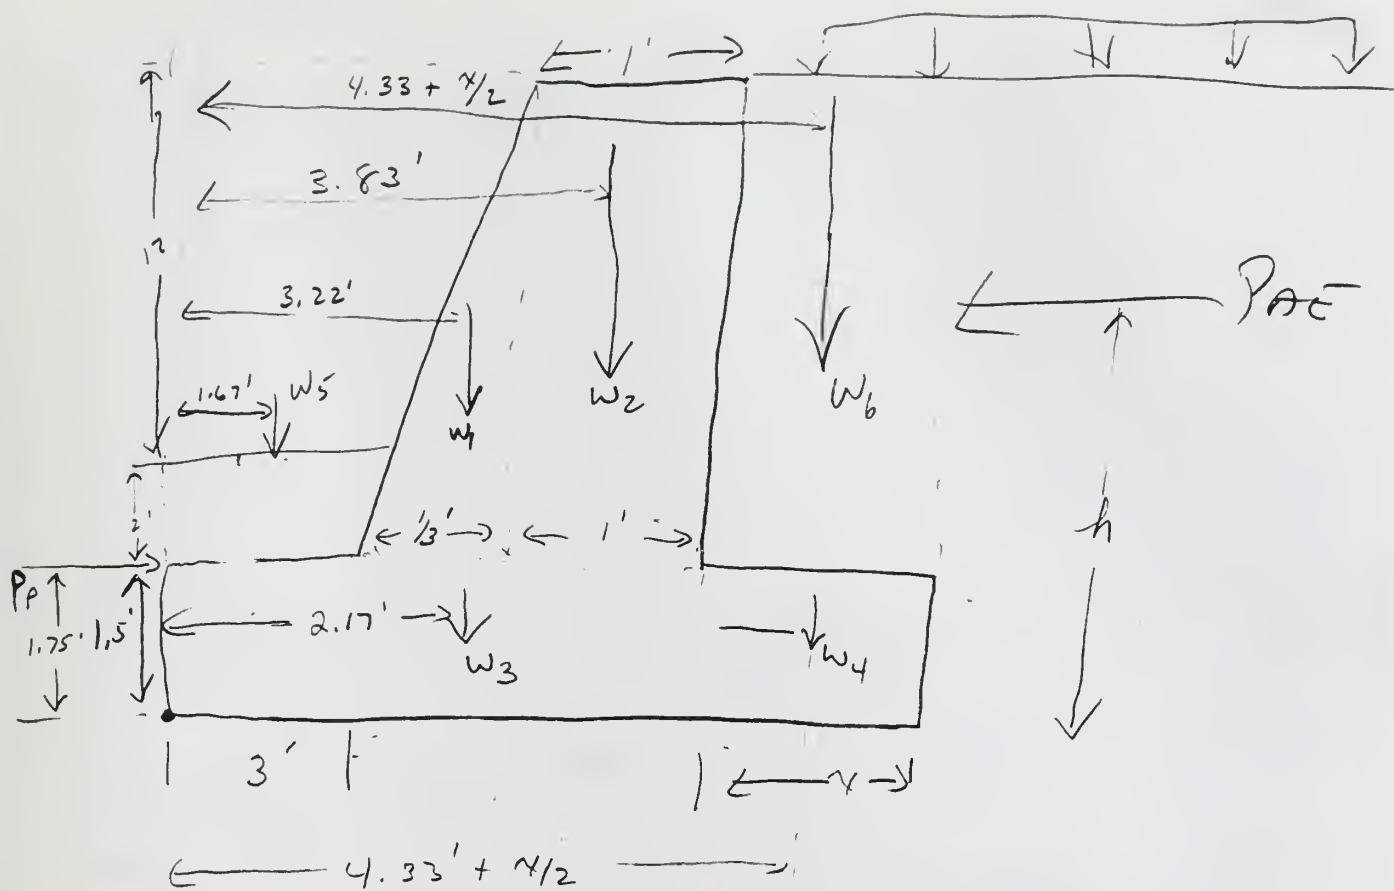 1'
4.33 + x/2
3.83'
12
3.22'
1.67' W5
W1
W2
W6
PAE
2'
1/3' 1'
h
Pp
1.75' 1.5'
2.17'
W3
W4
3'
x
4.33' + x/2